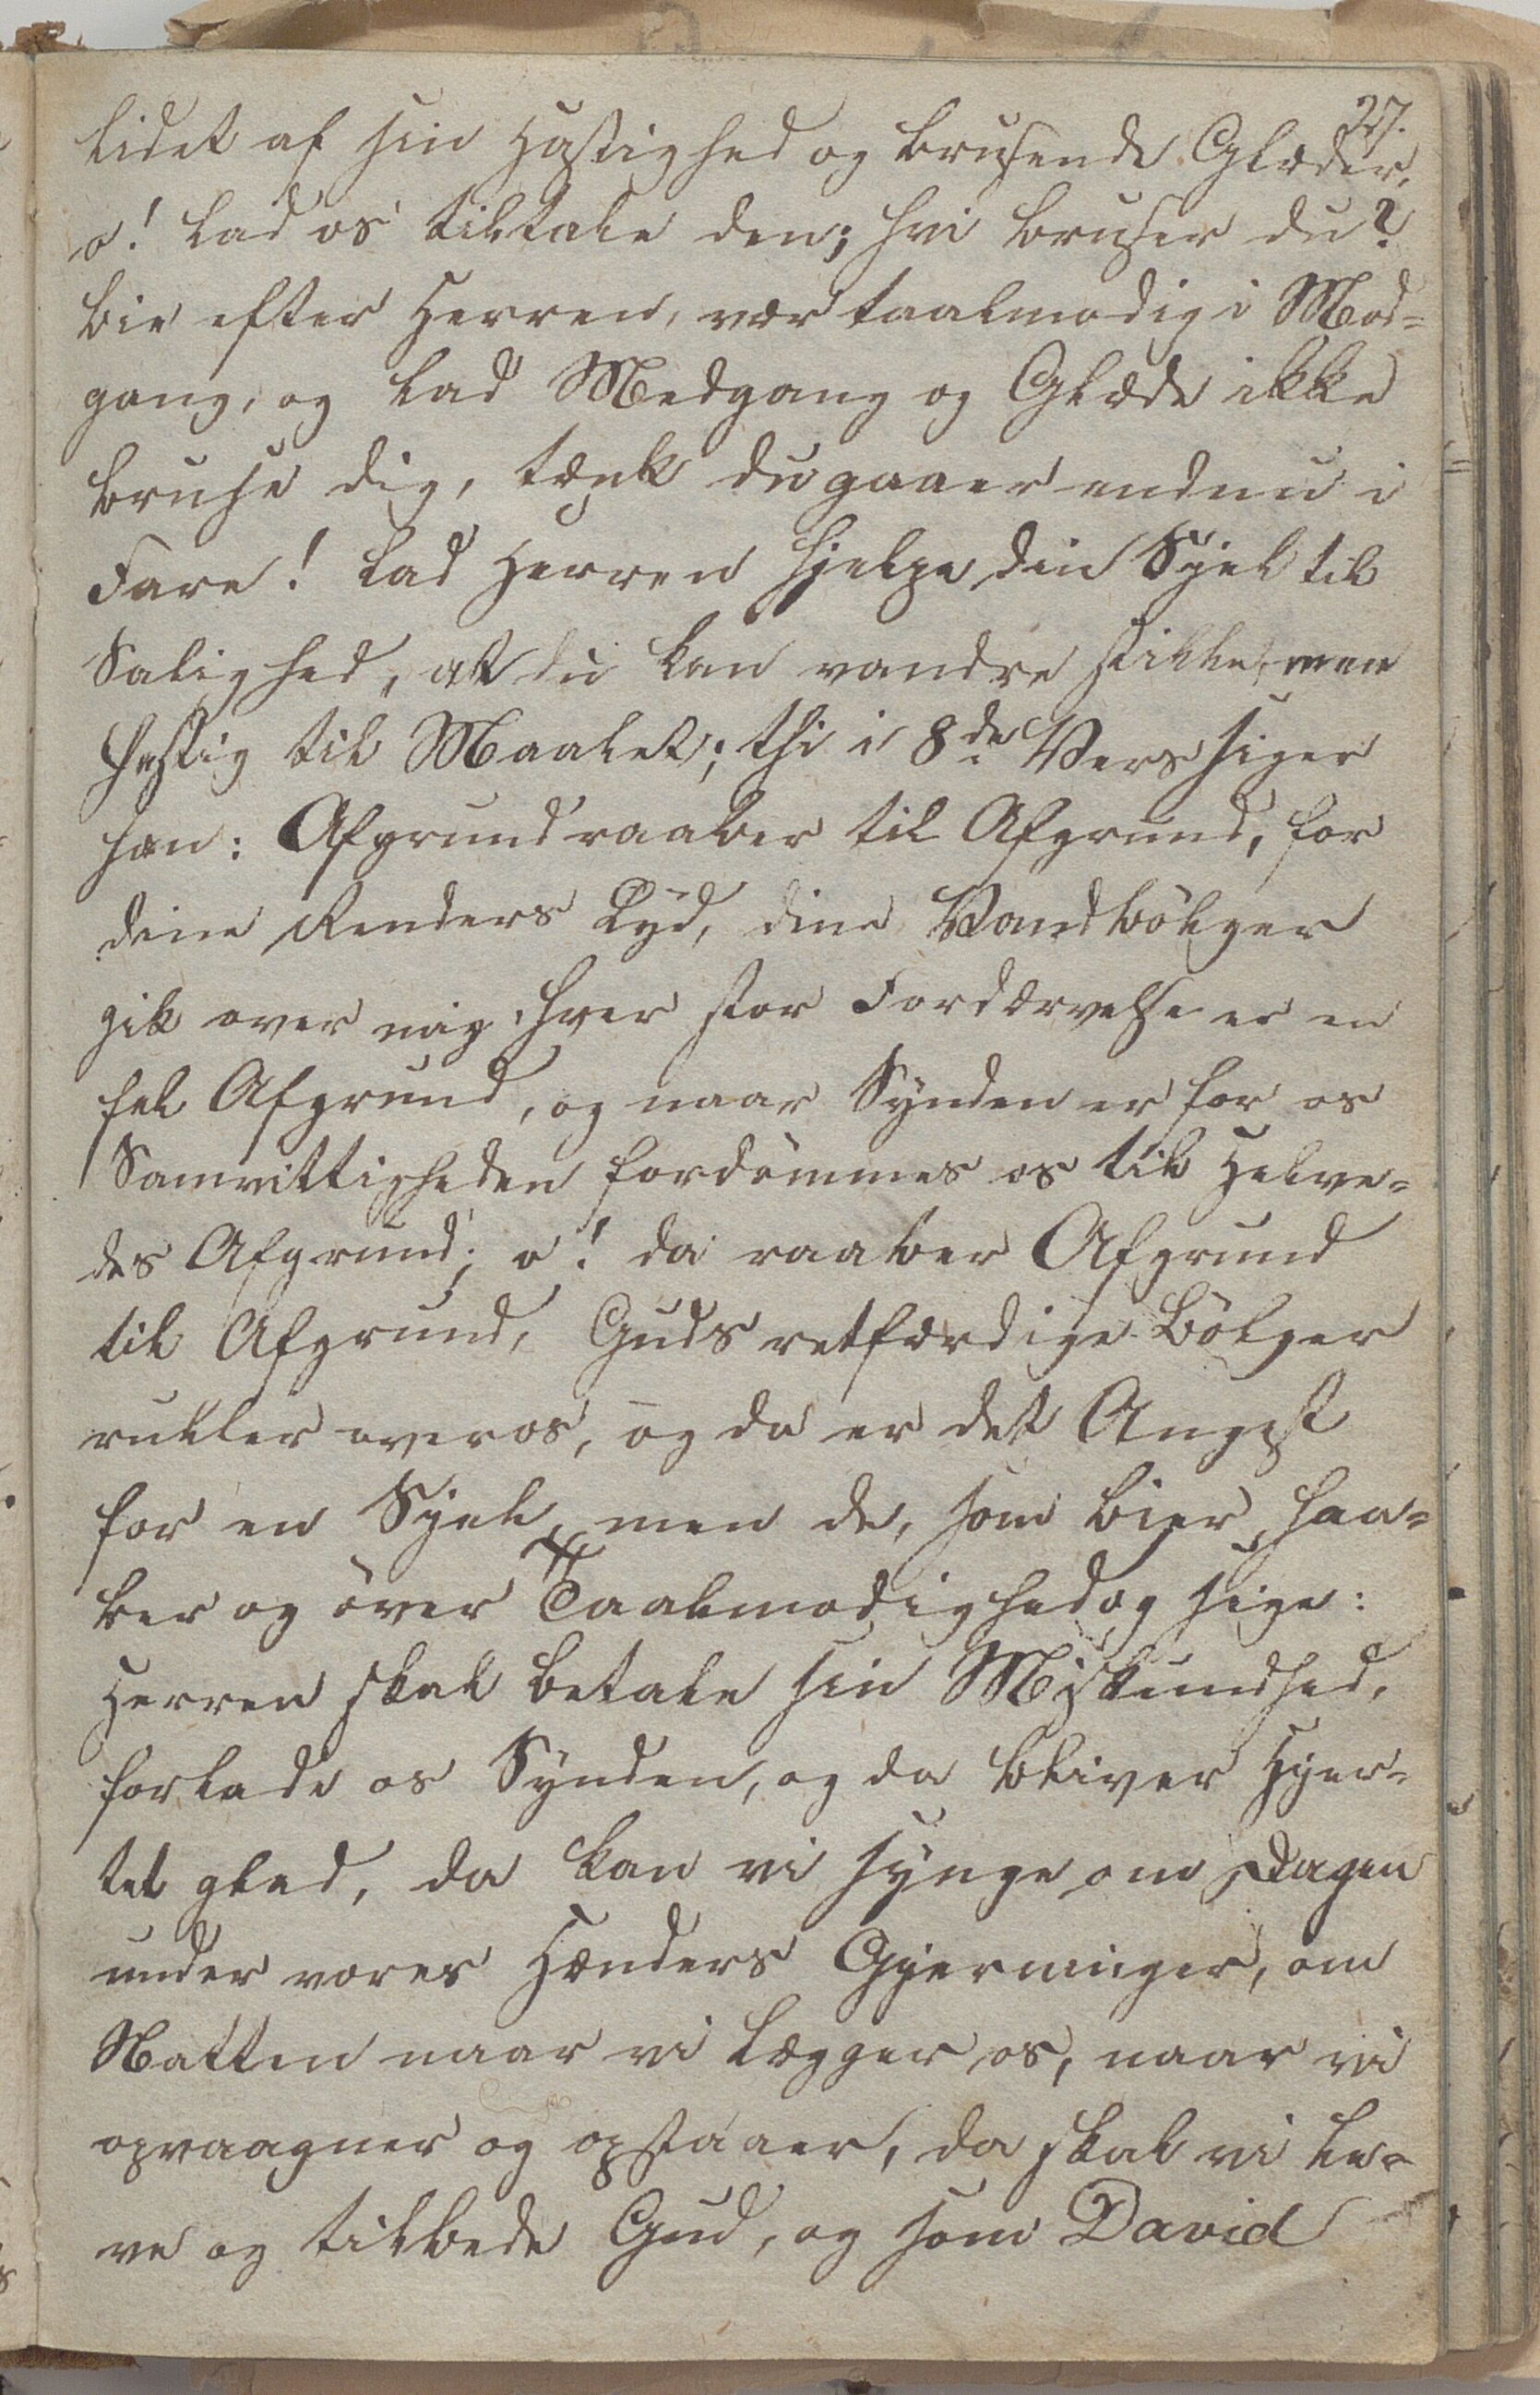 27.
lidet af sin Hastighed og brusende Glæder,
o! lad os tiltale den; hvi bruser du?
bie efter Herren, vær taalmodig i Mod=
gang, og lad Medgang og Glæde ikke
bruse dig, tænk du gaaer endnu i
Fare! lad Herren hjelpe din Sjel til
Salighed, at du kan vandre stille, men
hastig til Maalet; thi i 8de Vers siger
han: Afgrund raaber til Afgrund, for
dine Renders Lyd, dine Vandbölger
gik over mig. hver stor Fordærvelse er en
fel Afgrund, og naar Synden er for os
Samvittigheden fordömmes os til Helve=
des Afgrund; o! da raaber Afgrund
til Afgrund, Guds retfærdige Bölger
ruller over os, og da er det Angest
for en Sjel, men de, som bier, haa=
ber og över Taalmodighed, og sige:
Herren skal betale sin Miskundhed,
forlade os Synden, og da bliver Hjer=
tet glad, da kan vi synge om Dagen
under vores Hænders Gjerninger, om
Natten naar vi lægger os, naar vi
opvaagner og opstaaer, da skal vi le=
ve og tilbede Gud, og som David